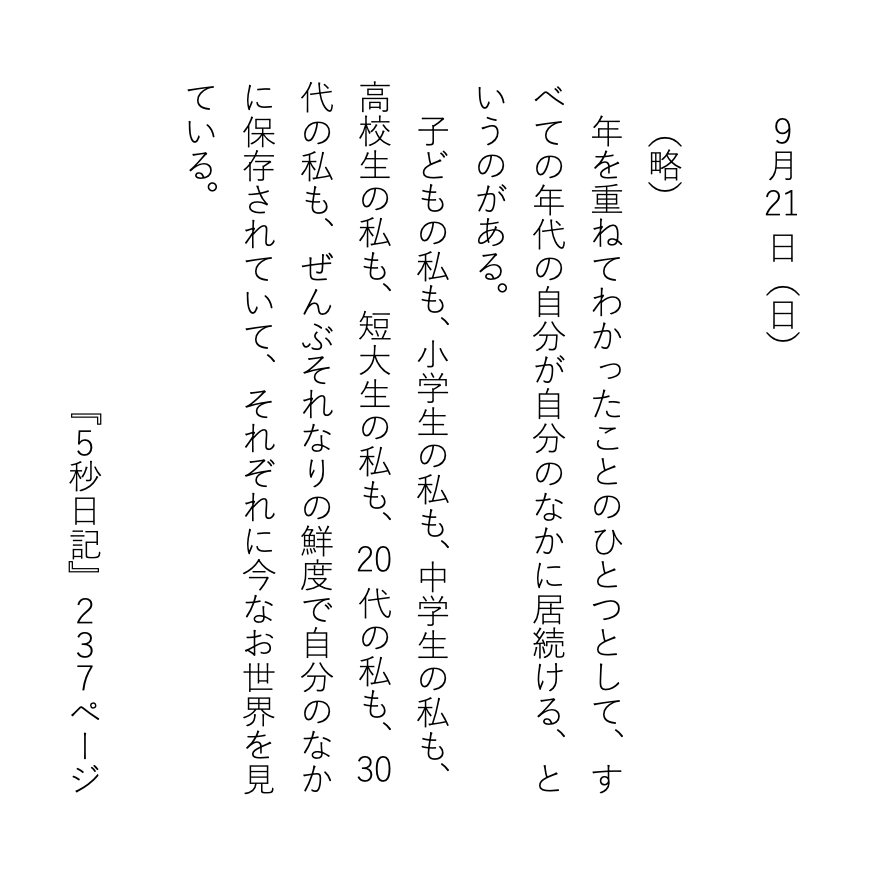 9月21日（日）
（略）
　年を重ねてわかったことのひとつとして、す
べての年代の自分が自分のなかに居続ける、と
いうのがある。
　子どもの私も、小学生の私も、中学生の私も、
高校生の私も、短大生の私も、20代の私も、30
代の私も、ぜんぶそれなりの鮮度で自分のなか
に保存されていて、それぞれに今なお世界を見
ている。
『5秒日記』237ページ